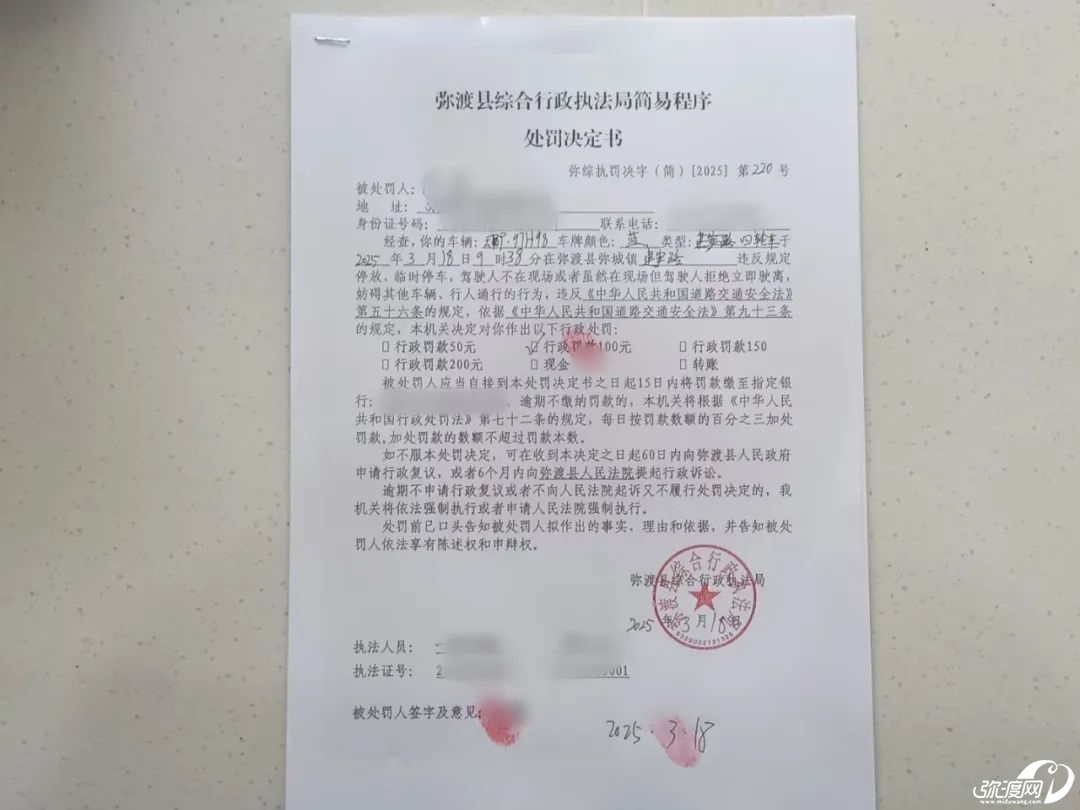 弥渡县综合行政执法局简易程序
处罚决定书
弥综执罚决字（简）[2025] 第220号
被处罚人：
地 址：
身份证号码： 联系电话：
经查，你的车辆： 车牌颜色：蓝 类型： 四轮车于
2025年3月18日9时38分在弥渡县弥城镇建宁路 违反规定
停放、临时停车，驾驶人不在现场或者虽然在现场但驾驶人拒绝立即驶离，
妨碍其他车辆、行人通行的行为，违反《中华人民共和国道路交通安全法》
第五十六条的规定，依据《中华人民共和国道路交通安全法》第九十三条
的规定，本机关决定对你作出以下行政处罚：
□行政罚款50元 ☑行政罚款100元 □行政罚款150
□行政罚款200元 □现金 □转账
被处罚人应当自接到本处罚决定书之日起15日内将罚款缴至指定银
行： 、逾期不缴纳罚款的，本机关将根据《中华人民
共和国行政处罚法》第七十二条的规定，每日按罚款数额的百分之三加处
罚款,加处罚款的数额不超过罚款本数。
如不服本处罚决定，可在收到本决定之日起60日内向弥渡县人民政府
申请行政复议，或者6个月内向弥渡县人民法院提起行政诉讼。
逾期不申请行政复议或者不向人民法院起诉又不履行处罚决定的，我
机关将依法强制执行或者申请人民法院强制执行。
处罚前已口头告知被处罚人拟作出的事实、理由和依据，并告知被处
罚人依法享有陈述权和申辩权。
弥渡县综合行政执法局
弥渡县综合行政执法局
2025年3月18日
5329002191326
执法人员：
执法证号：2 001
被处罚人签字及意见：
2025.3.18
弥渡网
www.miduwang.com